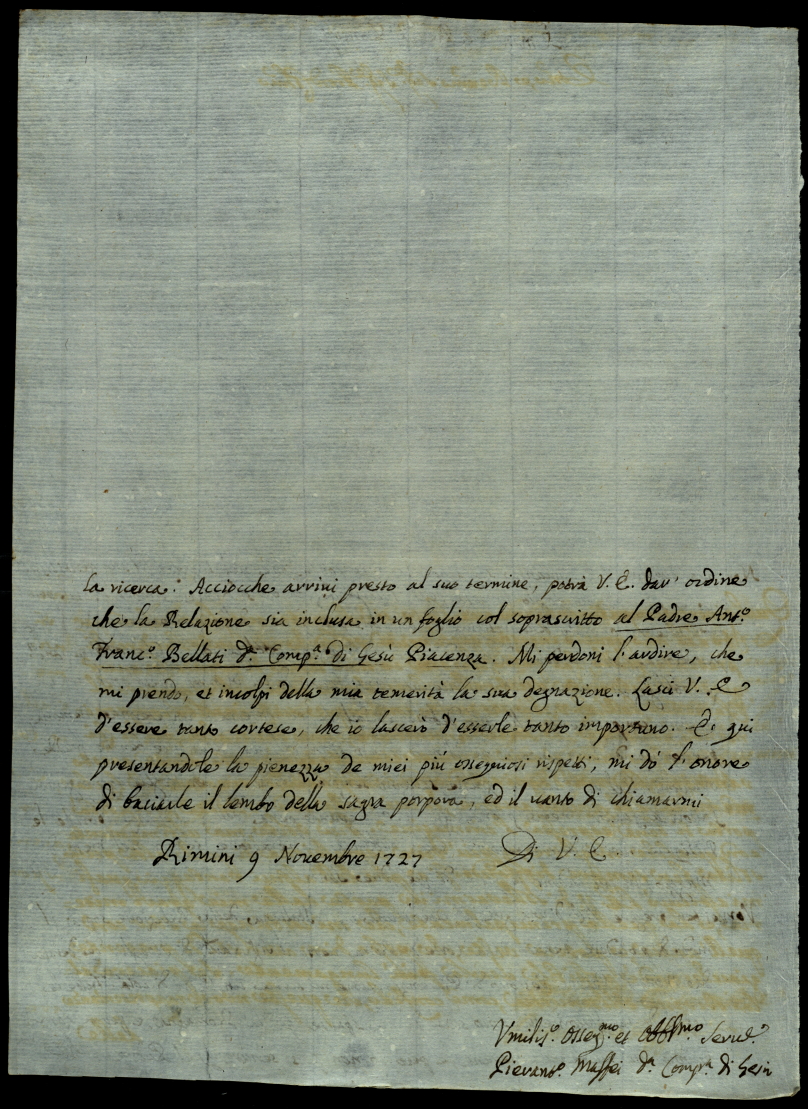 la ricerca. Acciocche arrivi presto al suo termine, potrà V. E. dar' ordine
che la Relazione sia inclusa in un foglio col soprascritto al Padre Ant.º
Franc.º Bellati d.ª Comp.ª di Gesù Piacenza. Mi perdoni l'ardire, che
mi prendo, et incolpi della mia temerità la sua degnazione. Lasci V. E
d'essere tanto cortese, che io lascerò d'esserle tanto importuno. E qui
presentandole la pienezza de miei più ossequiosi rispetti, mi dò l'onore
di baciarle il lembo della sagra porpora, ed il vanto di chiamarmi
Rimini 9 Novembre 1727 Di V. E.
Vmilis.º Osseq.mo et Obbl.mo
Maffei d.ª Comp.ª di Gesù